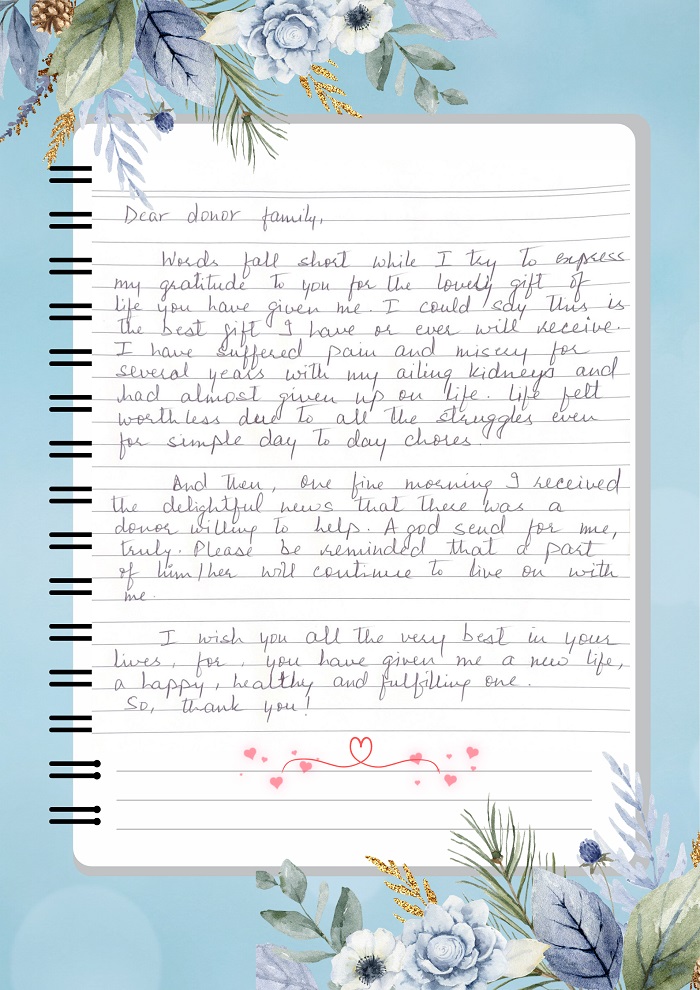 Dear donor family,
Words fall short while I try to express
my gratitude to you for the lovely gift of
life you have given me. I could say this is
the best gift I have or ever will receive.
I have suffered pain and misery for
several years with my ailing kidneys and
had almost given up on life. Life felt
worthless due to all the struggles even
for simple day to day chores.
And then, one fine morning I received
the delightful news that there was a
donor willing to help. A god send for me,
truly. Please be reminded that a part
of him/her will continue to live on with
me.
I wish you all the very best in your
lives, for, you have given me a new life,
a happy, healthy and fulfilling one.
So, thank you!